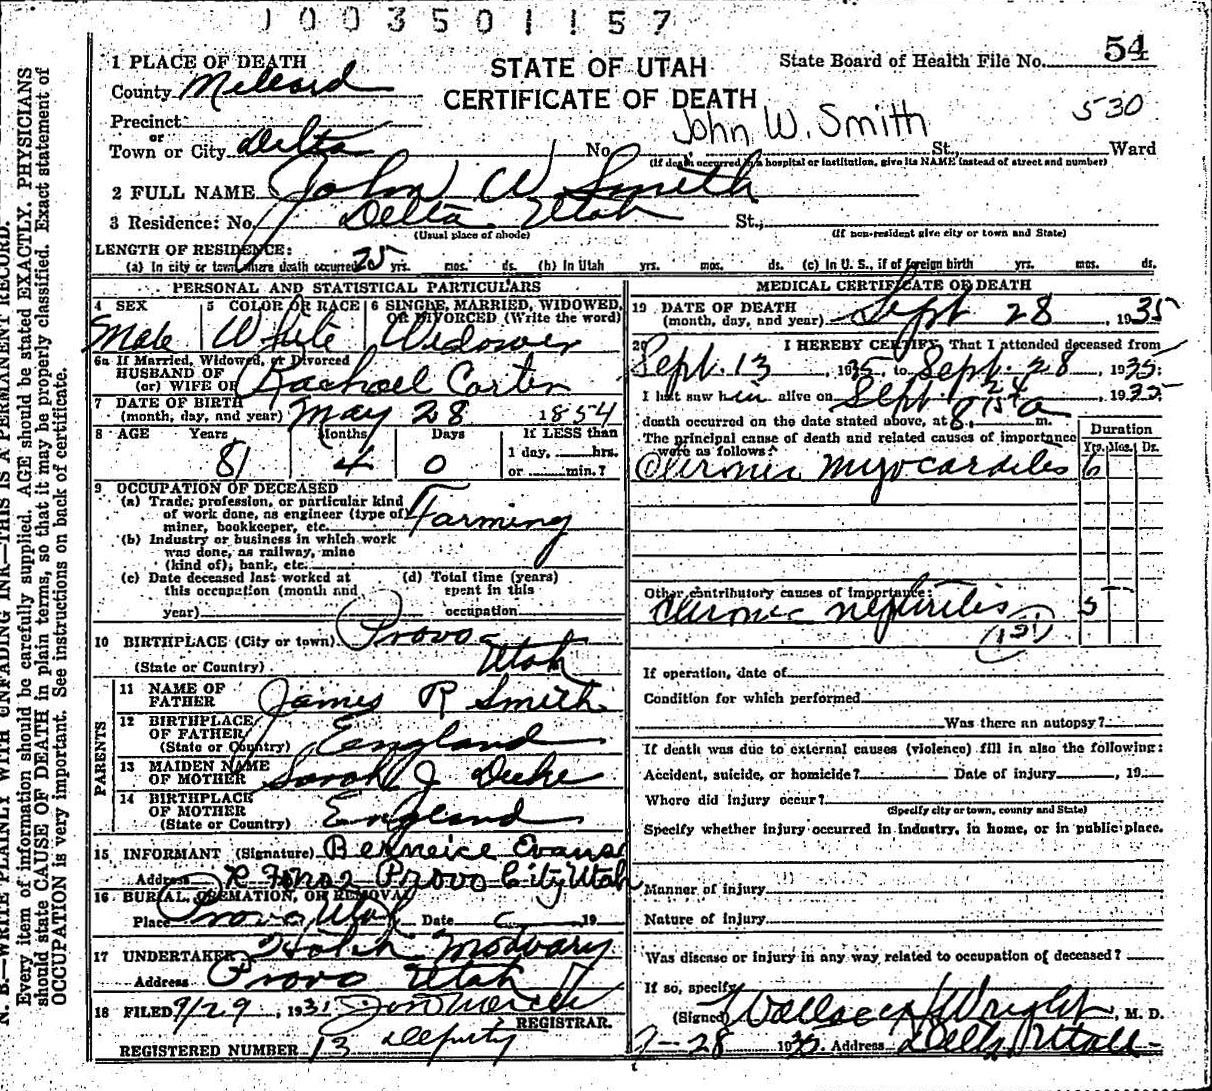 1003501157
54
1 PLACE OF DEATH
STATE OF UTAH
State Board of Health File No.
County Millard
CERTIFICATE OF DEATH
530
Precinct
John W. Smith
or
Town or City Delta No. St., Ward
(If death occurred in a hospital or institution, give its NAME instead of street and number)
2 FULL NAME John W Smith
3 Residence: No. Delta Utah St.,
(Usual place of abode) (If non-resident give city or town and State)
LENGTH OF RESIDENCE:
(a) In city or town where death occurred 25 yrs. mos. ds. (b) In Utah yrs. mos. ds. (c) In U. S., if of foreign birth yrs. mos. ds.
PERSONAL AND STATISTICAL PARTICULARS
4 SEX 5 COLOR OR RACE 6 SINGLE, MARRIED, WIDOWED,
OR DIVORCED (Write the word)
Male White Widower
6a If Married, Widowed, or Divorced
HUSBAND OF
(or) WIFE OF Rachael Carter
7 DATE OF BIRTH
(month, day, and year) May 28 1854
8 AGE Years Months Days If LESS than
1 day, hrs.
81 4 0 or min.?
9 OCCUPATION OF DECEASED
(a) Trade, profession, or particular kind
of work done, as engineer (type of)
miner, bookkeeper, etc. Farming
(b) Industry or business in which work
was done, as railway, mine
(kind of), bank, etc.
(c) Date deceased last worked at (d) Total time (years)
this occupation (month and spent in this
year) occupation
10 BIRTHPLACE (City or town) Provo
(State or Country) Utah
PARENTS
11 NAME OF
FATHER James R Smith
12 BIRTHPLACE
OF FATHER
(State or Country) England
13 MAIDEN NAME
OF MOTHER Sarah J
14 BIRTHPLACE
OF MOTHER
(State or Country) England
15 INFORMANT (Signature) Berneice Evans
Address Provo City Utah
16 BURIAL, CREMATION, OR REMOVAL
Place Provo, Utah Date 19
17 UNDERTAKER Mortuary
Address Provo Utah
18 FILED 9/29, 193
REGISTRAR.
Deputy
REGISTERED NUMBER 13
MEDICAL CERTIFICATE OF DEATH
19 DATE OF DEATH
(month, day, and year) Sept 28, 1935
20 I HEREBY CERTIFY, That I attended deceased from
Sept. 13, 1935, to Sept. 28, 1935;
I last saw him alive on Sept 24, 1935
death occurred on the date stated above, at 8 15 a m.
The principal cause of death and related causes of importance
were as follows:
Duration
Yrs. Mos. Ds.
Chronic Myocarditis 6
Other contributory causes of importance:
Chronic nephritis 5
(131)
If operation, date of
Condition for which performed
Was there an autopsy?
If death was due to external causes (violence) fill in also the following:
Accident, suicide, or homicide? Date of injury, 19
Where did injury occur?
(Specify city or town, county and State)
Specify whether injury occurred in industry, in home, or in public place.
Manner of injury
Nature of injury
Was disease or injury in any way related to occupation of deceased?
If so, specify
(Signed) Wallace Wright, M. D.
9-28 1935. Address Delta, Utah
N. B.—WRITE PLAINLY WITH UNFADING INK—THIS IS A PERMANENT RECORD.
Every item of information should be carefully supplied. AGE should be stated EXACTLY. PHYSICIANS
should state CAUSE OF DEATH in plain terms, so that it may be properly classified. Exact statement of
OCCUPATION is very important. See instructions on back of certificate.